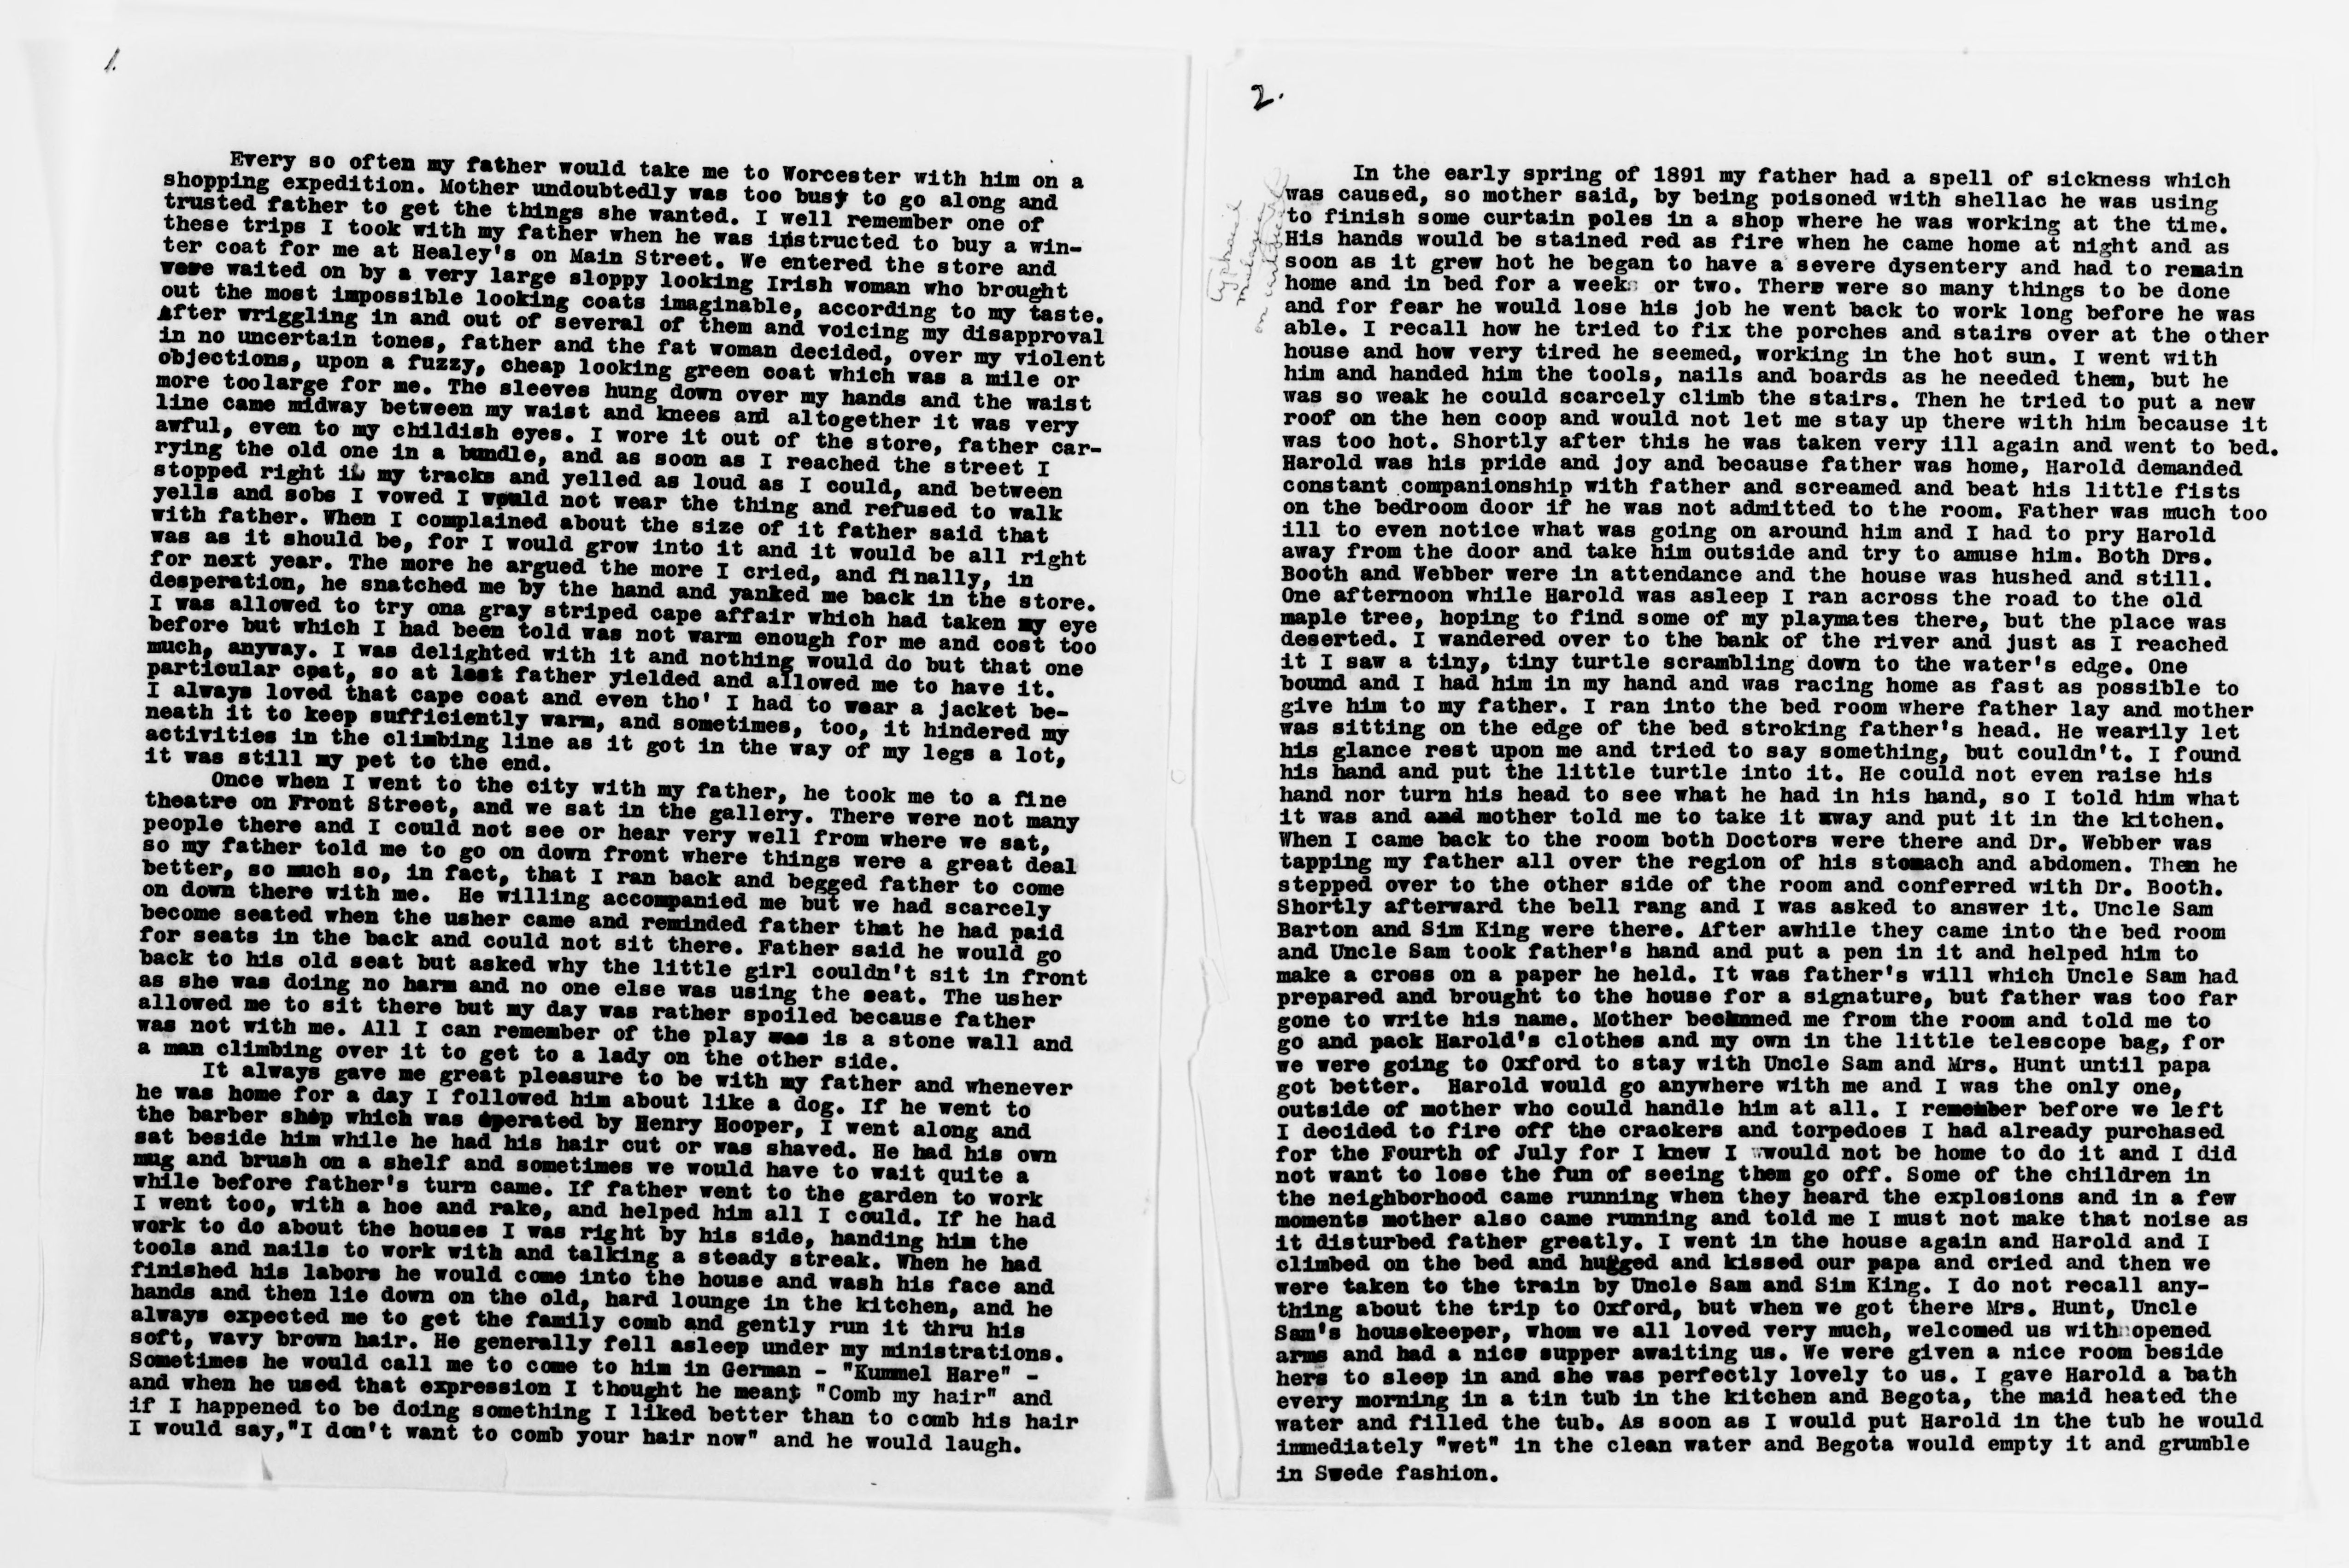 1.
Every so often my father would take me to Worcester with him on a
shopping expedition. Mother undoubtedly was too busy to go along and
trusted father to get the things she wanted. I well remember one of
these trips I took with my father when he was instructed to buy a win-
ter coat for me at Healey's on Main Street. We entered the store and
were waited on by a very large sloppy looking Irish woman who brought
out the most impossible looking coats imaginable, according to my taste.
After wriggling in and out of several of them and voicing my disapproval
in no uncertain tones, father and the fat woman decided, over my violent
objections, upon a fuzzy, cheap looking green coat which was a mile or
more toolarge for me. The sleeves hung down over my hands and the waist
line came midway between my waist and knees and altogether it was very
awful, even to my childish eyes. I wore it out of the store, father car-
rying the old one in a bundle, and as soon as I reached the street I
stopped right in my tracks and yelled as loud as I could, and between
yells and sobs I vowed I would not wear the thing and refused to walk
with father. When I complained about the size of it father said that
was as it should be, for I would grow into it and it would be all right
for next year. The more he argued the more I cried, and finally, in
desperation, he snatched me by the hand and yanked me back in the store.
I was allowed to try ona gray striped cape affair which had taken my eye
before but which I had been told was not warm enough for me and cost too
much, anyway. I was delighted with it and nothing would do but that one
particular coat, so at last father yielded and allowed me to have it.
I always loved that cape coat and even tho' I had to wear a jacket be-
neath it to keep sufficiently warm, and sometimes, too, it hindered my
activities in the climbing line as it got in the way of my legs a lot,
it was still my pet to the end.
Once when I went to the city with my father, he took me to a fine
theatre on Front Street, and we sat in the gallery. There were not many
people there and I could not see or hear very well from where we sat,
so my father told me to go on down front where things were a great deal
better, so much so, in fact, that I ran back and begged father to come
on down there with me. He willing accompanied me but we had scarcely
become seated when the usher came and reminded father that he had paid
for seats in the back and could not sit there. Father said he would go
back to his old seat but asked why the little girl couldn't sit in front
as she was doing no harm and no one else was using the seat. The usher
allowed me to sit there but my day was rather spoiled because father
was not with me. All I can remember of the play was is a stone wall and
a man climbing over it to get to a lady on the other side.
It always gave me great pleasure to be with my father and whenever
he was home for a day I followed him about like a dog. If he went to
the barber shop which was operated by Henry Hooper, I went along and
sat beside him while he had his hair cut or was shaved. He had his own
mug and brush on a shelf and sometimes we would have to wait quite a
while before father's turn came. If father went to the garden to work
I went too, with a hoe and rake, and helped him all I could. If he had
work to do about the houses I was right by his side, handing him the
tools and nails to work with and talking a steady streak. When he had
finished his labors he would come into the house and wash his face and
hands and then lie down on the old, hard lounge in the kitchen, and he
always expected me to get the family comb and gently run it thru his
soft, wavy brown hair. He generally fell asleep under my ministrations.
Sometimes he would call me to come to him in German - "Kummel Hare" -
and when he used that expression I thought he meant "Comb my hair" and
if I happened to be doing something I liked better than to comb his hair
I would say,"I don't want to comb your hair now" and he would laugh.
2.
typhoid
In the early spring of 1891 my father had a spell of sickness which
was caused, so mother said, by being poisoned with shellac he was using
to finish some curtain poles in a shop where he was working at the time.
His hands would be stained red as fire when he came home at night and as
soon as it grew hot he began to have a severe dysentery and had to remain
home and in bed for a week or two. There were so many things to be done
and for fear he would lose his job he went back to work long before he was
able. I recall how he tried to fix the porches and stairs over at the other
house and how very tired he seemed, working in the hot sun. I went with
him and handed him the tools, nails and boards as he needed them, but he
was so weak he could scarcely climb the stairs. Then he tried to put a new
roof on the hen coop and would not let me stay up there with him because it
was too hot. Shortly after this he was taken very ill again and went to bed.
Harold was his pride and joy and because father was home, Harold demanded
constant companionship with father and screamed and beat his little fists
on the bedroom door if he was not admitted to the room. Father was much too
ill to even notice what was going on around him and I had to pry Harold
away from the door and take him outside and try to amuse him. Both Drs.
Booth and Webber were in attendance and the house was hushed and still.
One afternoon while Harold was asleep I ran across the road to the old
maple tree, hoping to find some of my playmates there, but the place was
deserted. I wandered over to the bank of the river and just as I reached
it I saw a tiny, tiny turtle scrambling down to the water's edge. One
bound and I had him in my hand and was racing home as fast as possible to
give him to my father. I ran into the bed room where father lay and mother
was sitting on the edge of the bed stroking father's head. He wearily let
his glance rest upon me and tried to say something, but couldn't. I found
his hand and put the little turtle into it. He could not even raise his
hand nor turn his head to see what he had in his hand, so I told him what
it was and and mother told me to take it away and put it in the kitchen.
When I came back to the room both Doctors were there and Dr. Webber was
tapping my father all over the region of his stomach and abdomen. Then he
stepped over to the other side of the room and conferred with Dr. Booth.
Shortly afterward the bell rang and I was asked to answer it. Uncle Sam
Barton and Sim King were there. After awhile they came into the bed room
and Uncle Sam took father's hand and put a pen in it and helped him to
make a cross on a paper he held. It was father's will which Uncle Sam had
prepared and brought to the house for a signature, but father was too far
gone to write his name. Mother beckoned me from the room and told me to
go and pack Harold's clothes and my own in the little telescope bag, for
we were going to Oxford to stay with Uncle Sam and Mrs. Hunt until papa
got better. Harold would go anywhere with me and I was the only one,
outside of mother who could handle him at all. I remember before we left
I decided to fire off the crackers and torpedoes I had already purchased
for the Fourth of July for I knew I would not be home to do it and I did
not want to lose the fun of seeing them go off. Some of the children in
the neighborhood came running when they heard the explosions and in a few
moments mother also came running and told me I must not make that noise as
it disturbed father greatly. I went in the house again and Harold and I
climbed on the bed and hugged and kissed our papa and cried and then we
were taken to the train by Uncle Sam and Sim King. I do not recall any-
thing about the trip to Oxford, but when we got there Mrs. Hunt, Uncle
Sam's housekeeper, whom we all loved very much, welcomed us with opened
arms and had a nice supper awaiting us. We were given a nice room beside
hers to sleep in and she was perfectly lovely to us. I gave Harold a bath
every morning in a tin tub in the kitchen and Begota, the maid heated the
water and filled the tub. As soon as I would put Harold in the tub he would
immediately "wet" in the clean water and Begota would empty it and grumble
in Swede fashion.